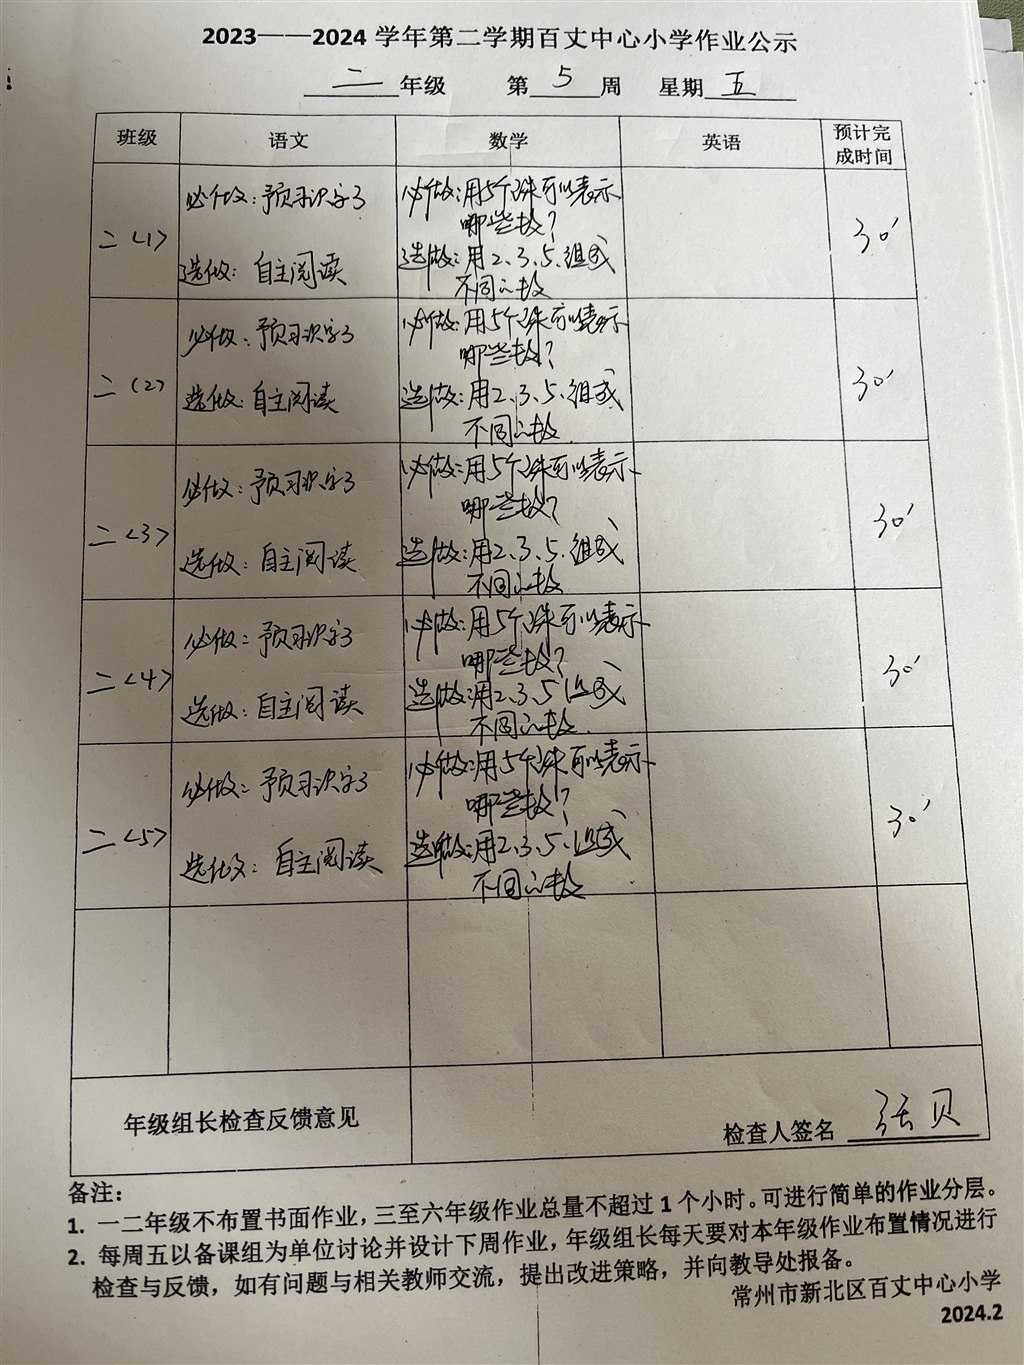 2023——2024 学年第二学期百丈中心小学作业公示
二 年级 第 5 周 星期 五
班级 语文 数学 英语 预计完成时间
二（1）
必做：预习识字3
选做：自主阅读
必做：用5个珠可以表示
哪些数？
选做：用2、3、5、组成
不同的数
30'
二（2）
必做：预习识字3
选做：自主阅读
必做：用5个珠可以表示
哪些数？
选做：用2、3、5、组成
不同的数
30'
二（3）
必做：预习识字3
选做：自主阅读
必做：用5个珠可以表示
哪些数？
选做：用2、3、5、组成
不同的数
30'
二（4）
必做：预习识字3
选做：自主阅读
必做：用5个珠可以表示
哪些数？
选做：用2、3、5组成
不同的数
30'
二（5）
必做：预习识字3
选做：自主阅读
必做：用5个珠可以表示
哪些数？
选做：用2、3、5、组成
不同的数
30'
年级组长检查反馈意见
检查人签名 张贝
备注：
1. 一二年级不布置书面作业，三至六年级作业总量不超过 1 个小时。可进行简单的作业分层。
2. 每周五以备课组为单位讨论并设计下周作业，年级组长每天要对本年级作业布置情况进行
检查与反馈，如有问题与相关教师交流，提出改进策略，并向教导处报备。
常州市新北区百丈中心小学
2024.2